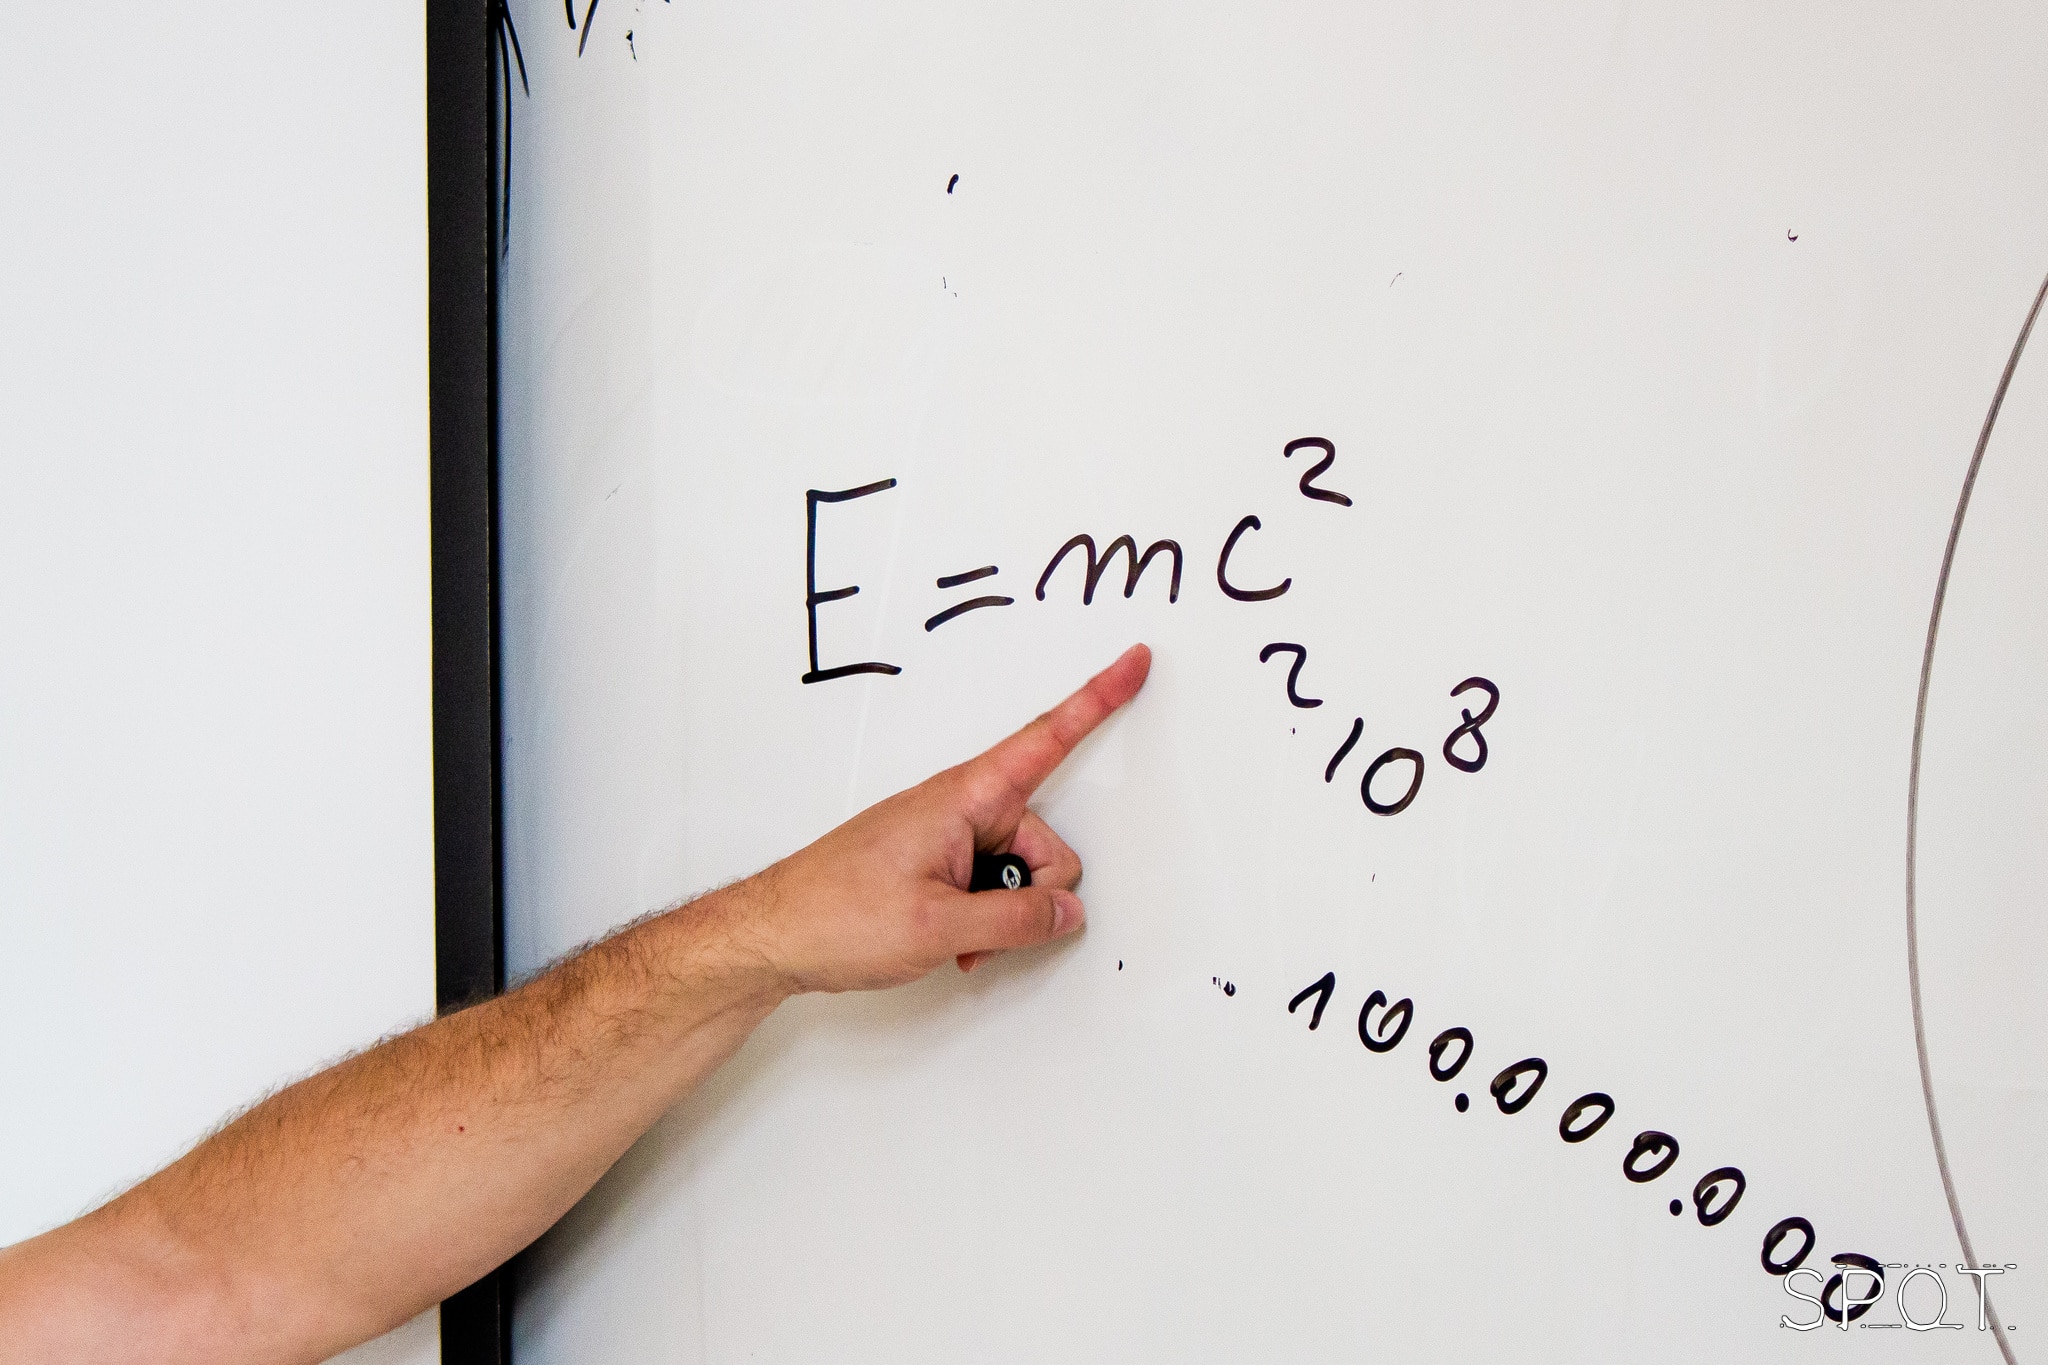 E = mc²
2 10⁸
100.000.000
SPQT